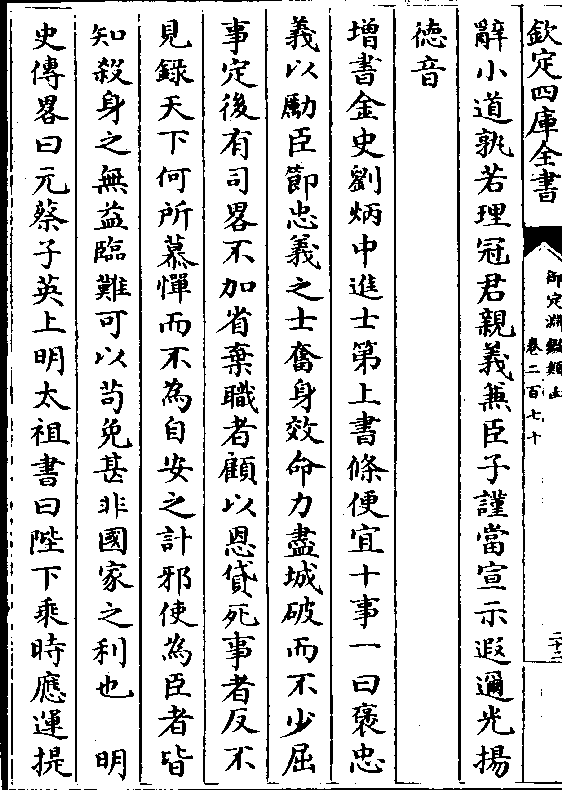 欽定四庫全書
御定淵鑑類函
卷二百七十
二十二
辭小道孰若理冠君親義兼臣子謹當宣示遐邇光揚
徳音
增書金史劉炳中進士第上書條便宜十事一曰褒忠
義以勵臣節忠義之士奮身效命力盡城破而不少屈
事定後有司畧不加省棄職者顧以恩貸死事者反不
見錄天下何所慕憚而不為自安之計邪使為臣者皆
知殺身之無益臨難可以苟免甚非國家之利也　明
史傳畧曰元蔡子英上明太祖書曰陛下乘時應運提